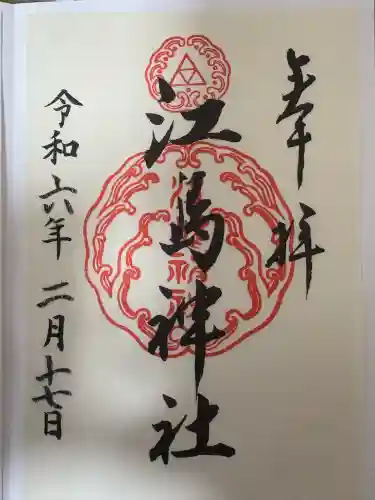 奉拝
江島神社
令和六年二月十七日